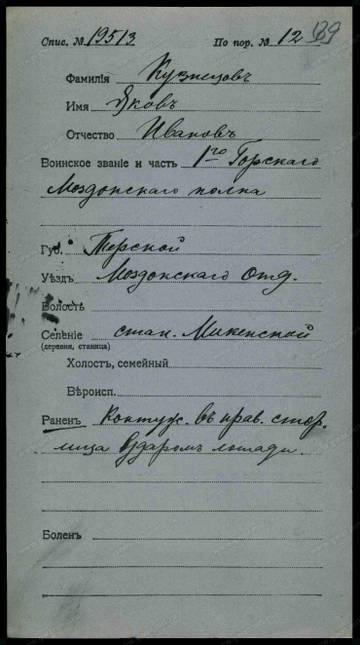 Спис. № 19513 По пор. № 12 39
Фамилія Кузнецовъ
Имя Яковъ
Отчество Ивановъ
Воинское званіе и часть 1го Горскаго
Моздокскаго полка
Губ. Терской
Уѣздъ Моздокскаго отд.
Волость
Селеніе стан. Микенской
(деревня, станица)
Холостъ, семейный
Вѣроисп.
Раненъ Контуж. въ прав. стор.
лица ударомъ лошади.
Боленъ